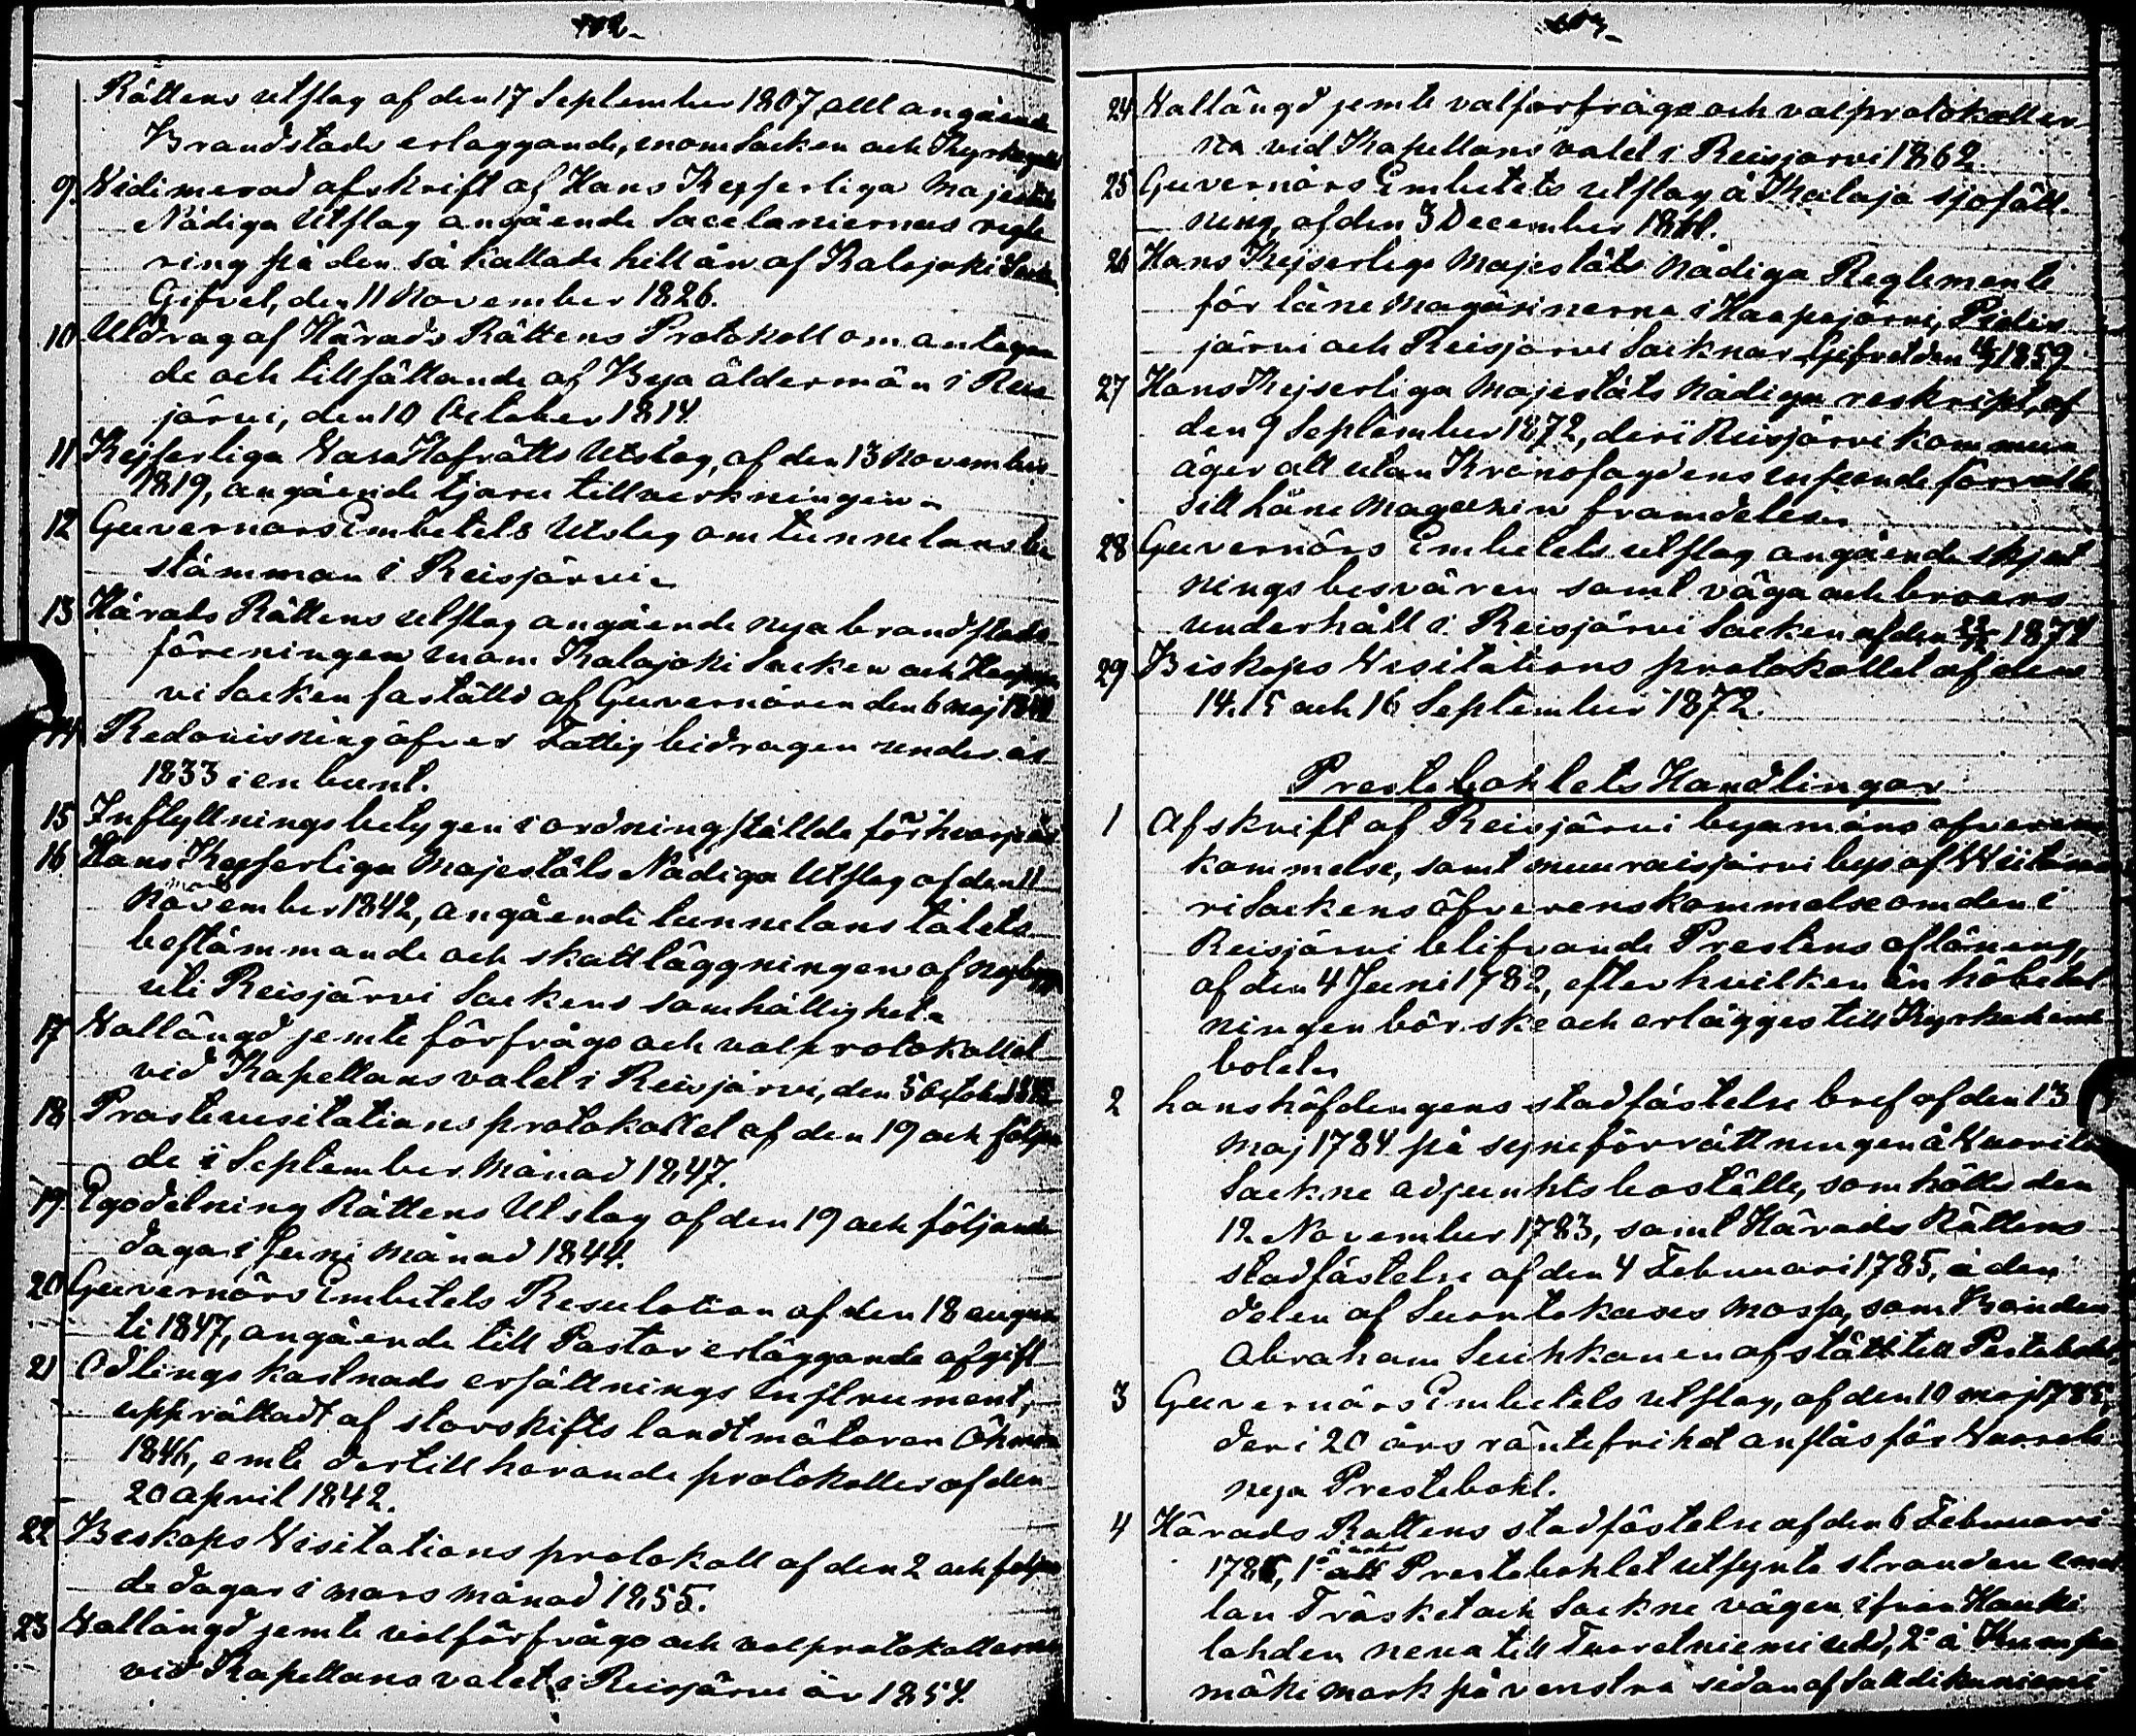 702.
Rättens utslag af den 17 September 1807, allt angående
Brandstods erläggande, inom Socken och
9. Vidimerad afskrift af Hans Keyserliga Majestäts
Nådiga Utslag angående Sacelaniernas regle
ring på den så kallade hill ån af Kalajoki
Gifvet, den 11 November 1826.
10 Utdrag af Härads Rättens Protokoll om antagan
de och tillsättande af Bya åldermän i Reis
järvi, den 10 October 1814.
11 Kejserliga Vasa Hofrätts Utslag, af den 13 November
1819, angående tjäru tillverkningen.
12 Guvernörs Embetets Utslag om tunnelans be
stämman i Reisjärvi.
13 Härads Rättens utslag angående nya brandstods
föreningen inom Kalajoki Socken och
vi Socken faställd af Guvernören den 6 Maj
14 Redovisning öfver Fattig bidragen under år
1833 i en bunt.
15 Inflyttnings betygen i ordning ställde för hvarje år
16. Hans Keyserliga Majestäts Nådiga Utslag af den 11
November 1842, angående tunnelans talets
bestämmande och skattläggningen af
uti Reisjärvi Sockens samhällighet.
17 Vallängd jemte förfrågs och valprotokollet
vid Kapellans valet i Reisjärvi, den 5 October
18 Prostevisitations protokollet af den 19 och följan
de i September Månad 1847.
19. Egodelning Rättens Utslag af den 19 och följande
dagar i Juni Månad 1844.
20 Guvernörs Embetets Resulotion af den 18 augus
ti 1847, angående till Pastor erläggande afgift
21 Odlings kostnads ersättnings Instrument,
upprättadt af storskifts landtmätaren Öhman
1846, emte dertill hörande protokoller af den
20 april 1842.
22 Biskops Visitations protokoll af den 2 och följan
de dagar i mars månad 1855.
23 Vallängd jemte valförfrågs och valprotokollerna
vid Kapellans valet i Reisjärvi år 1854.
703.
24 Vallängd jemte valförfrågs och valprotokoller
na vid Kapellans valet i Reisjärvi 1862.
25 Guvernörs Embetets utslag å Kalaja sjöfäll
ning, af den 3 December
26 Hans Kejserliga Majestäts Nådiga Reglemente
för låne Magasinerna i Haapajärvi, Pidis
järvi och Reisjärvi Socknar Gifvet den 1859.
27 Hans Kejserliga Majestäts Nådiga reskript, af
den 9 September 1872, deri Reisjärvi kommun
äger att utan Kronofogdens inseende förvalta
sitt Låne Magasin framdeles.
28 Guvernörs Embetets utslag angående skjut
nings besvären samt väga och broars
underhåll i Reisjärvi Socken af den 1874
29 Biskops Visitations protokollet af den
14. 15 och 16 September 1872.
Prestebohlets Handlingar
1 Afskrift af Reisjärvi byamäns öfverens
kommelse, samt muuraisjärvi bys af Wiitasa
ri Sockens öfverenskommelse om den i
Reisjärvi blifvande Prestens aflöning,
af den 4 Juni 1782, efter hvilken än höbetal
ningen bör ske och erlägges till Kyrkoherde
bolet.
2 Lanshöfdingens stadfästelse bref af den 13
Maj 1784 på syneförrättningen å Wuorila
Sockne adjunkts boställe, som hölls den
12. November 1783, samt Härads Rättens
stadfästelse af den 4 Februari 1785, å den
delen af Suontakases Mossa, som Bonden
Abraham Suihkonen afstått till Prestebohlet
3 Guvernörs Embetets utslag, af den 10 maj 1785,
deri 20 års räntefrihet anslås för Wuorela
nya Prestebohl.
4 Härads Rattens stadfästelse af den 6 Februari
1786, 1° att Prestebohlet utsynta stranden emel
lan Träsket och Sockne vägen ifrån Hauki
lahden neva till Tuoretniemi udd, 2° å Kumpu
mäki mark på venstra sidan af